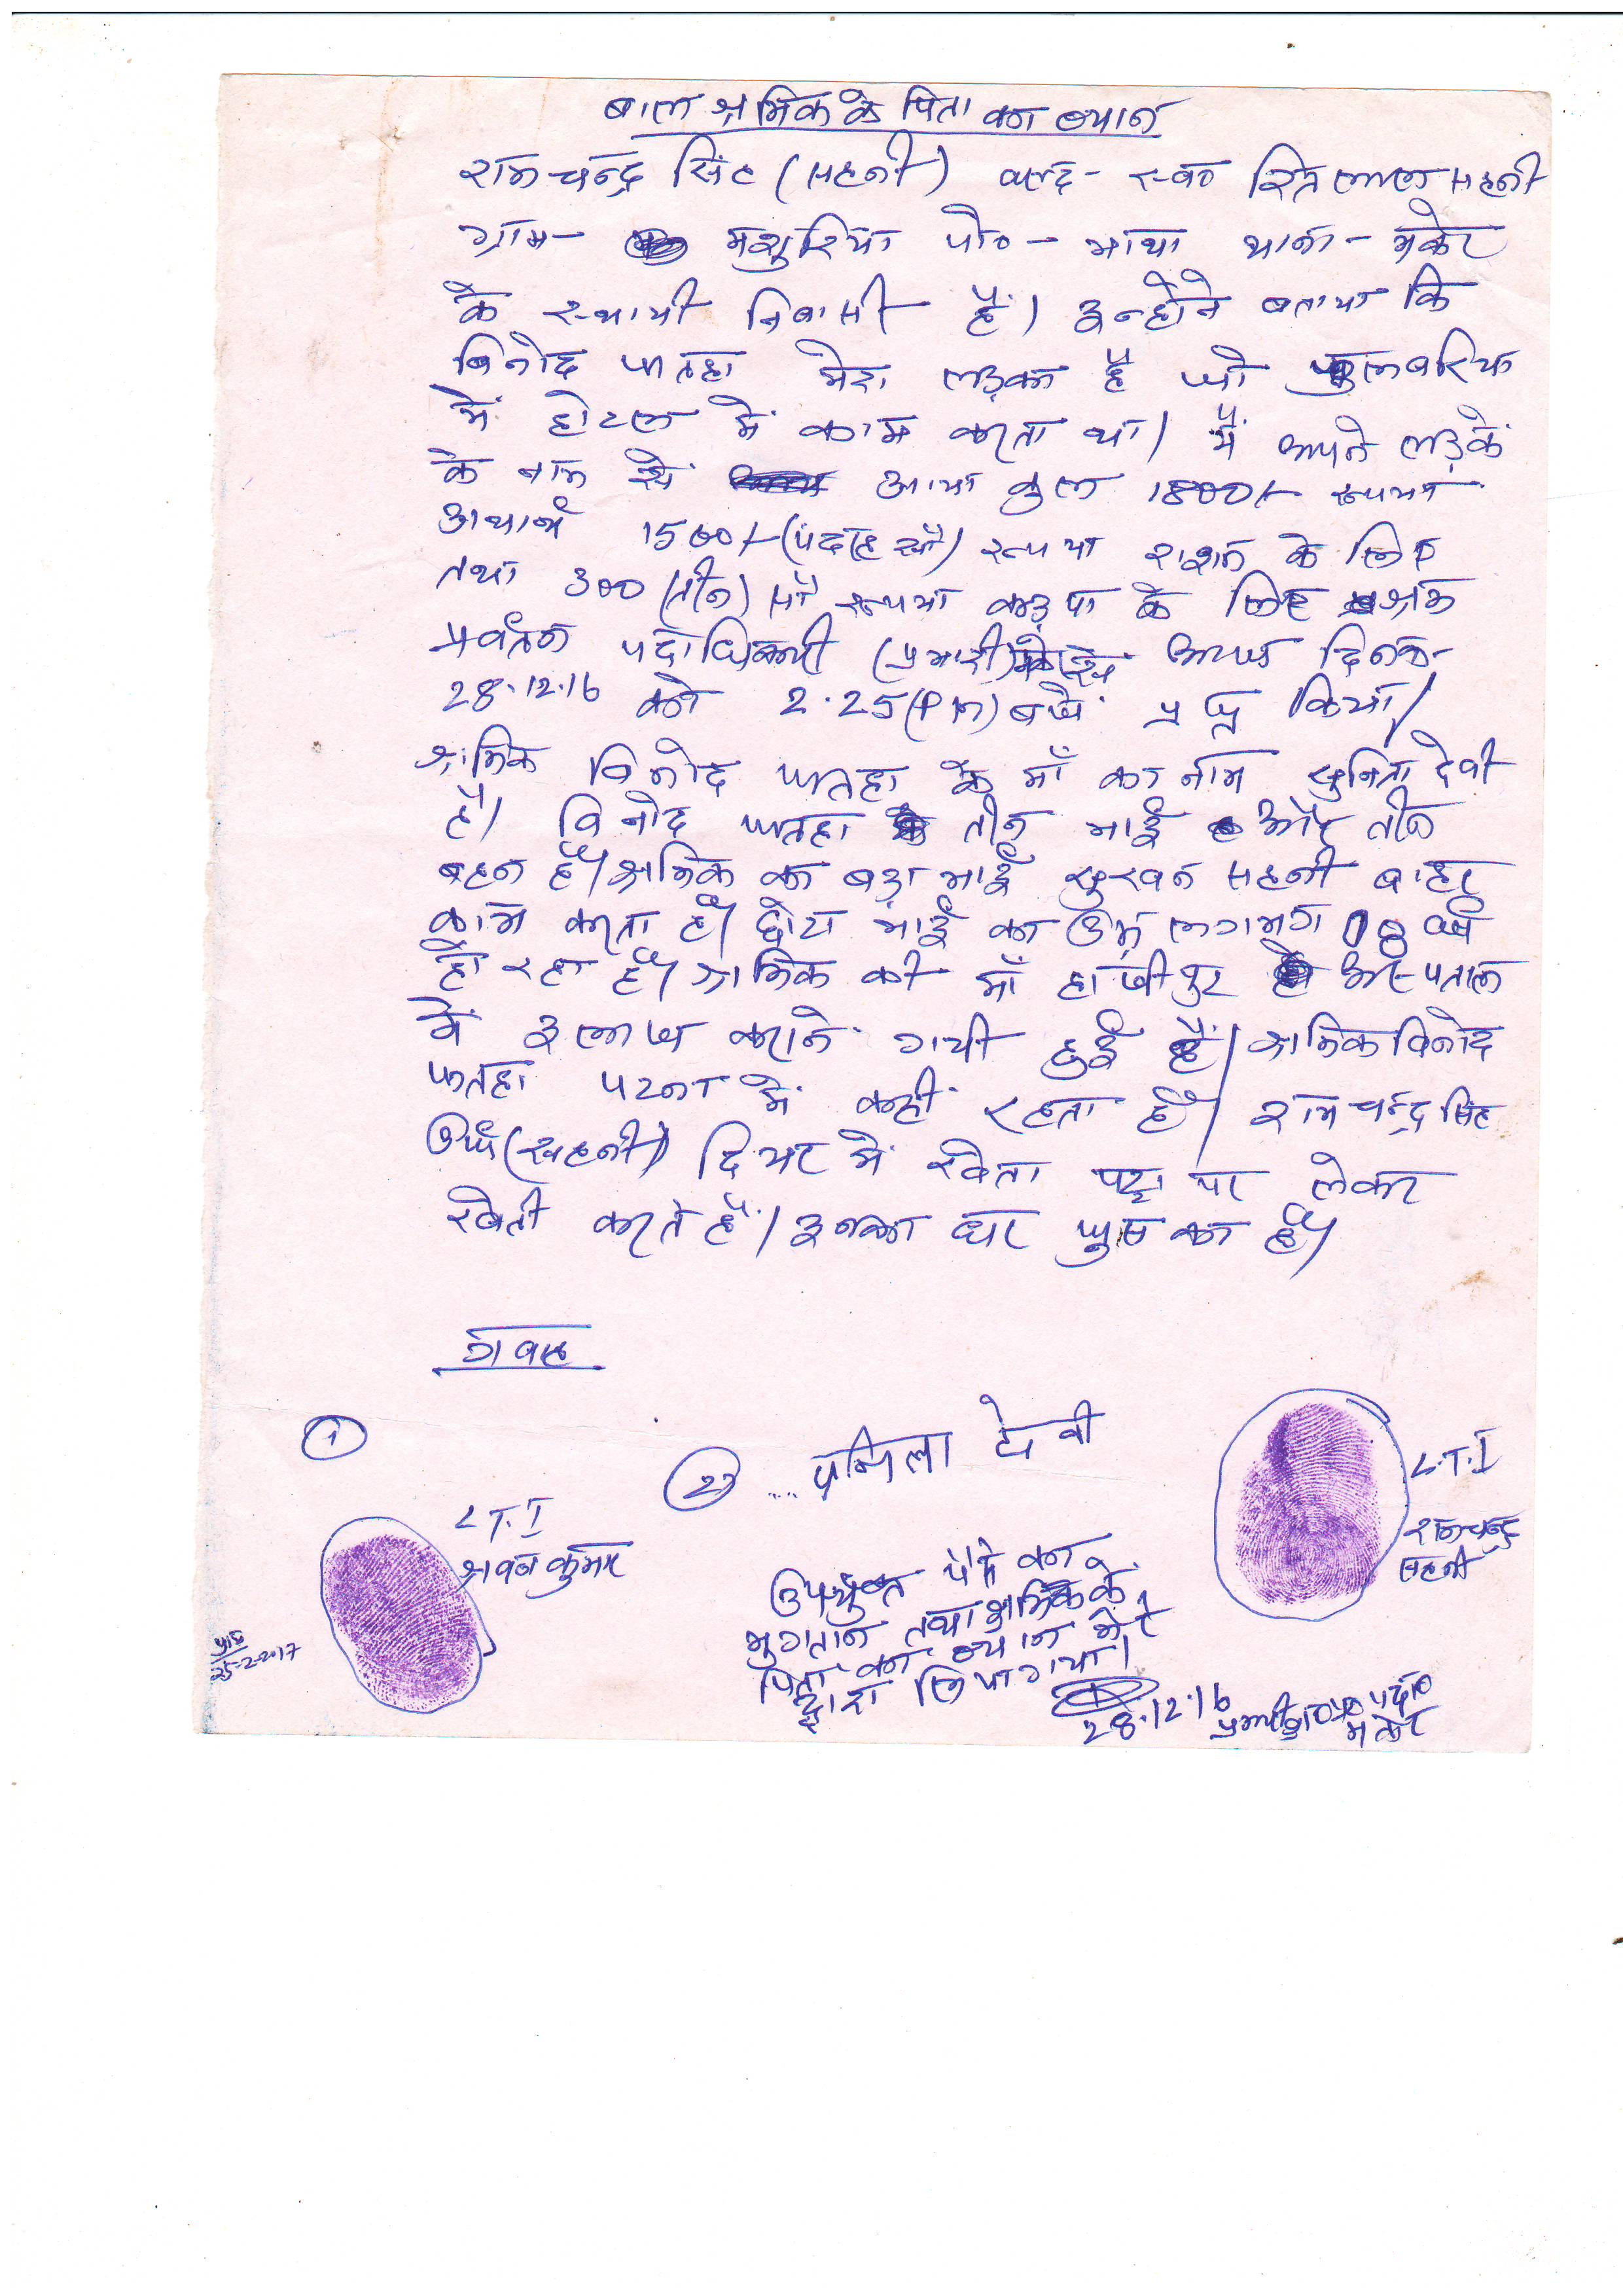 बाल श्रमिक के पिता का ब्यान
रामचन्द्र सिंह (सहनी) वल्द - स्व० लाल सहनी
ग्राम - मशुरिया पो० - भाथा थाना - मकेर
के स्थायी निवासी हैं। इन्होंने बताया कि
विनोद मेरा लड़का है जो फुलवरिया
में होटल में काम करता था। मैं अपने लड़के
के नाम से आया कुल 1800/- रूपया
अथार्थ 1500/- (पंद्रह सौ) रूपया राशन के लिए
तथा 300 (तीन) सौ रूपया कपड़ा के लिए श्रम
प्रर्वतन पदाधिकारी (प्रभारी) से आज दिनांक-
28.12.16 को 2.25 (PM) बजे प्राप्त किया।
श्रमिक विनोद के माँ का नाम सुनिता देवी
है। विनोद तीन भाई और तीन
बहन है। श्रमिक का बड़ा भाई सुखन सहनी बाहर
काम करता है। छोटा भाई का उम्र लगभग 08 वर्ष
हो रहा है। श्रमिक की माँ हाजीपुर अस्पताल
में इलाज कराने गयी हुई हैं। श्रमिक विनोद
पटना में कहीं रहता है। रामचन्द्र सिंह
उर्फ (सहनी) दियर में खेता पट्टा पर लेकर
खेती करते हैं। इनका घर फुस का है।
गवाह
①
L.T.I
श्रवन कुमार
② प्रमिला देवी
L.T.I
रामचन्द्र
सहनी
उपर्युक्त पैसे का
भुगतान तथा श्रमिक के
पिता का ब्यान मेरे
द्वारा लिया गया।
28.12.16
प्रभारी श्र०प्र० पदा०
मकेर
25-2-2017